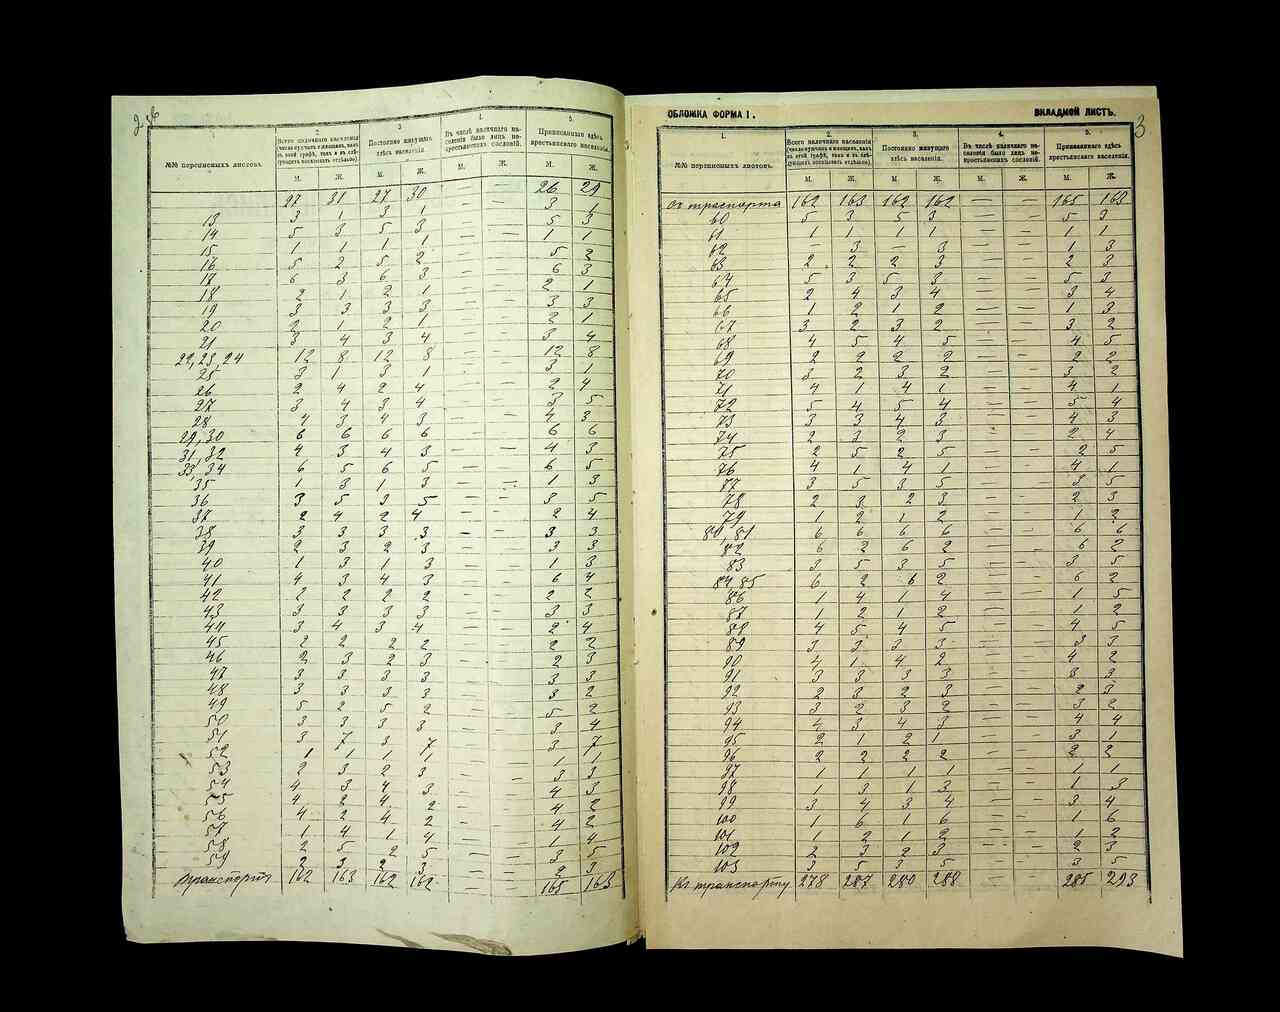 2
3
№№ переписныхъ листовъ.
2. 3 4. 5.
Всего наличнаго населенія
Постоянно живущаго здѣсь населенія.
Въ числѣ наличнаго населенія было лицъ некрестьянскихъ сословій.
Приписаннаго здѣсь крестьянскаго населенія.
М. Ж. М. Ж. М. Ж. М. Ж.
27 31 27 30 — — 26 29
13 3 1 3 1 — — 3 1
14 5 3 5 3 — — 5 3
15 1 1 1 1 — — 1 1
16 5 2 5 2 — — 5 2
17 6 3 6 3 — — 6 3
18 2 1 2 1 — — 2 1
19 3 3 3 3 — — 3 3
20 2 1 2 1 — — 2 1
21 3 4 3 4 — — 3 4
22, 23, 24 12 8 12 8 — — 12 8
25 3 1 3 1 — — 3 1
26 2 4 2 4 — — 2 4
27 3 4 3 4 — — 3 5
28 4 3 4 3 — — 4 3
29, 30 6 6 6 6 — — 6 6
31, 32 4 3 4 3 — — 4 3
33, 34 6 5 6 5 — — 6 5
35 1 3 1 3 — — 1 3
36 3 5 3 5 — — 3 5
37 2 4 2 4 — — 2 4
38 3 3 3 3 — — 3 3
39 2 3 2 3 — — 3 3
40 1 3 1 3 — — 1 3
41 4 3 4 3 — — 6 4
42 2 2 2 2 — — 2 2
43 3 3 3 3 — — 3 3
44 3 4 3 4 — — 2 4
45 2 2 2 2 — — 2 2
46 2 3 2 3 — — 2 3
47 3 3 3 3 — — 3 3
48 3 3 3 3 — — 3 2
49 5 2 5 2 — — 5 2
50 3 3 3 3 — — 3 4
51 3 7 3 7 — — 3 7
52 1 1 1 1 — — 1 1
53 2 3 2 3 — — 3 3
54 4 3 4 3 — — 4 3
55 4 2 4 2 — — 4 2
56 4 2 4 2 — — 4 2
57 1 4 1 4 — — 1 4
58 2 5 2 5 — — 3 5
59 2 3 2 3 — — 2 3
транспорту 162 163 162 162 — — 165 163
ОБЛОЖКА ФОРМА I. ВКЛАДНОЙ ЛИСТЪ.
1. 2. 3. 4. 5.
№№ переписныхъ листовъ.
Всего наличнаго населенія
Постоянно живущаго здѣсь населенія.
Въ числѣ наличнаго населенія было лицъ некрестьянскихъ сословій.
Приписаннаго здѣсь крестьянскаго населенія.
М. Ж. М. Ж. М. Ж. М. Ж.
Съ траспорта 162 163 162 162 — — 165 163
60 5 3 5 3 — — 5 3
61 1 1 1 1 — — 1 1
62 — 3 — 3 — — 1 3
63 2 2 2 3 — — 2 3
64 5 3 5 3 — — 5 3
65 2 4 3 4 — — 3 4
66 1 2 1 2 — — 1 3
67 3 2 3 2 — — 3 2
68 4 5 4 5 — — 4 5
69 2 2 2 2 — — 2 2
70 3 2 3 2 — — 3 2
71 4 1 4 1 — — 4 1
72 5 4 5 4 — — 5 4
73 3 3 4 3 — — 4 3
74 2 3 2 3 — — 2 4
75 2 5 2 5 — — 2 5
76 4 1 4 1 — — 4 1
77 3 5 3 5 — — 3 5
78 2 3 2 3 — — 2 3
79 1 2 1 2 — — 1 2
80, 81 6 6 6 6 — — 6 6
82 6 2 6 2 — — 6 2
83 3 5 3 5 — — 3 5
84, 85 6 2 6 2 — — 6 2
86 1 4 1 4 — — 1 5
87 1 2 1 2 — — 1 2
88 4 5 4 5 — — 4 5
89 3 3 3 3 — — 3 3
90 4 1 4 2 — — 4 2
91 3 3 3 3 — — 3 3
92 2 3 2 3 — — 2 3
93 3 2 3 2 — — 3 2
94 4 3 4 3 — — 4 4
95 2 1 2 1 — — 3 1
96 2 2 2 2 — — 2 2
97 1 1 1 1 — — 1 1
98 1 3 1 3 — — 1 3
99 3 4 3 4 — — 3 4
100 1 6 1 6 — — 1 6
101 1 2 1 2 — — 1 2
102 2 3 2 3 — — 2 3
103 3 5 3 5 — — 3 5
Къ транспорту 278 287 280 288 — — 285 293